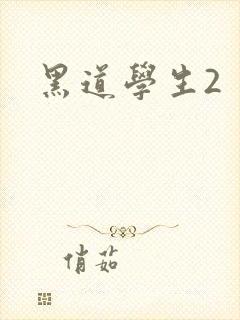 黑道學生2
俏茹